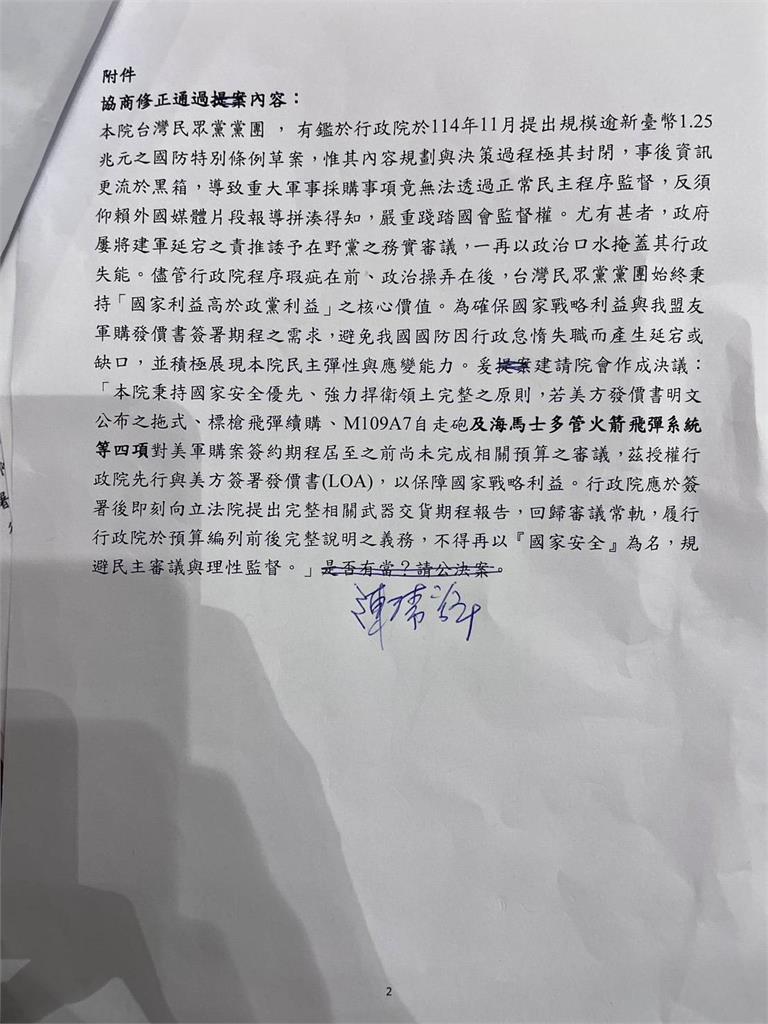 附件
協商修正通過提案內容：
本院台灣民眾黨黨團 ， 有鑑於行政院於114年11月提出規模逾新臺幣1.25
兆元之國防特別條例草案，惟其內容規劃與決策過程極其封閉，事後資訊
更流於黑箱，導致重大軍事採購事項竟無法透過正常民主程序監督，反須
仰賴外國媒體片段報導拼湊得知，嚴重踐踏國會監督權。尤有甚者，政府
屢將建軍延宕之責推諉予在野黨之務實審議，一再以政治口水掩蓋其行政
失能。儘管行政院程序瑕疵在前、政治操弄在後，台灣民眾黨黨團始終秉
持「國家利益高於政黨利益」之核心價值。為確保國家戰略利益與我盟友
軍購發價書簽署期程之需求，避免我國國防因行政怠惰失職而產生延宕或
缺口，並積極展現本院民主彈性與應變能力。爰提案建請院會作成決議：
「本院秉持國家安全優先、強力捍衛領土完整之原則，若美方發價書明文
公布之拖式、標槍飛彈續購、M109A7自走砲及海馬士多管火箭飛彈系統
等四項對美軍購案簽約期程屆至之前尚未完成相關預算之審議，茲授權行
政院先行與美方簽署發價書(LOA)，以保障國家戰略利益。行政院應於簽
署後即刻向立法院提出完整相關武器交貨期程報告，回歸審議常軌，履行
行政院於預算編列前後完整說明之義務，不得再以『國家安全』為名，規
避民主審議與理性監督。」是否有當？請公決案。
2